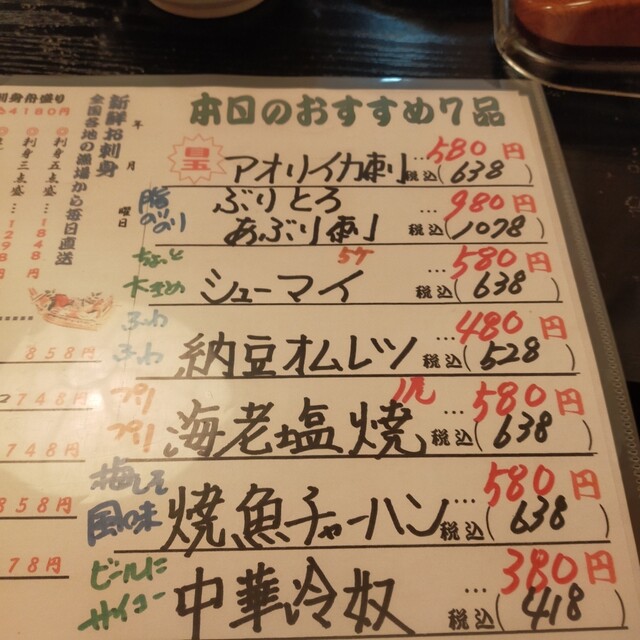 本日のおすすめ7品
目玉 アオリイカ刺し…580円
税込(638)
脂のり
のり
ぶりとろ
あぶり刺し
…980円
税込(1078)
ちょっと
大きめ
シューマイ 5ケ …580円
税込(638)
ふわ
ふわ
納豆オムレツ …480円
税込(528)
プリ
プリ
海老塩焼 1尾 …580円
税込(638)
梅しそ
風味
焼魚チャーハン …580円
税込(638)
ビールに
サイコー
中華冷奴 …380円
税込(418)
年 月 曜日
新鮮お刺身
全国各地の漁場から毎日直送
◎刺身五点盛…1848円
◎刺身三点盛…1298円
刺身舟盛り
4180円
858円
748円
748円
858円
78円